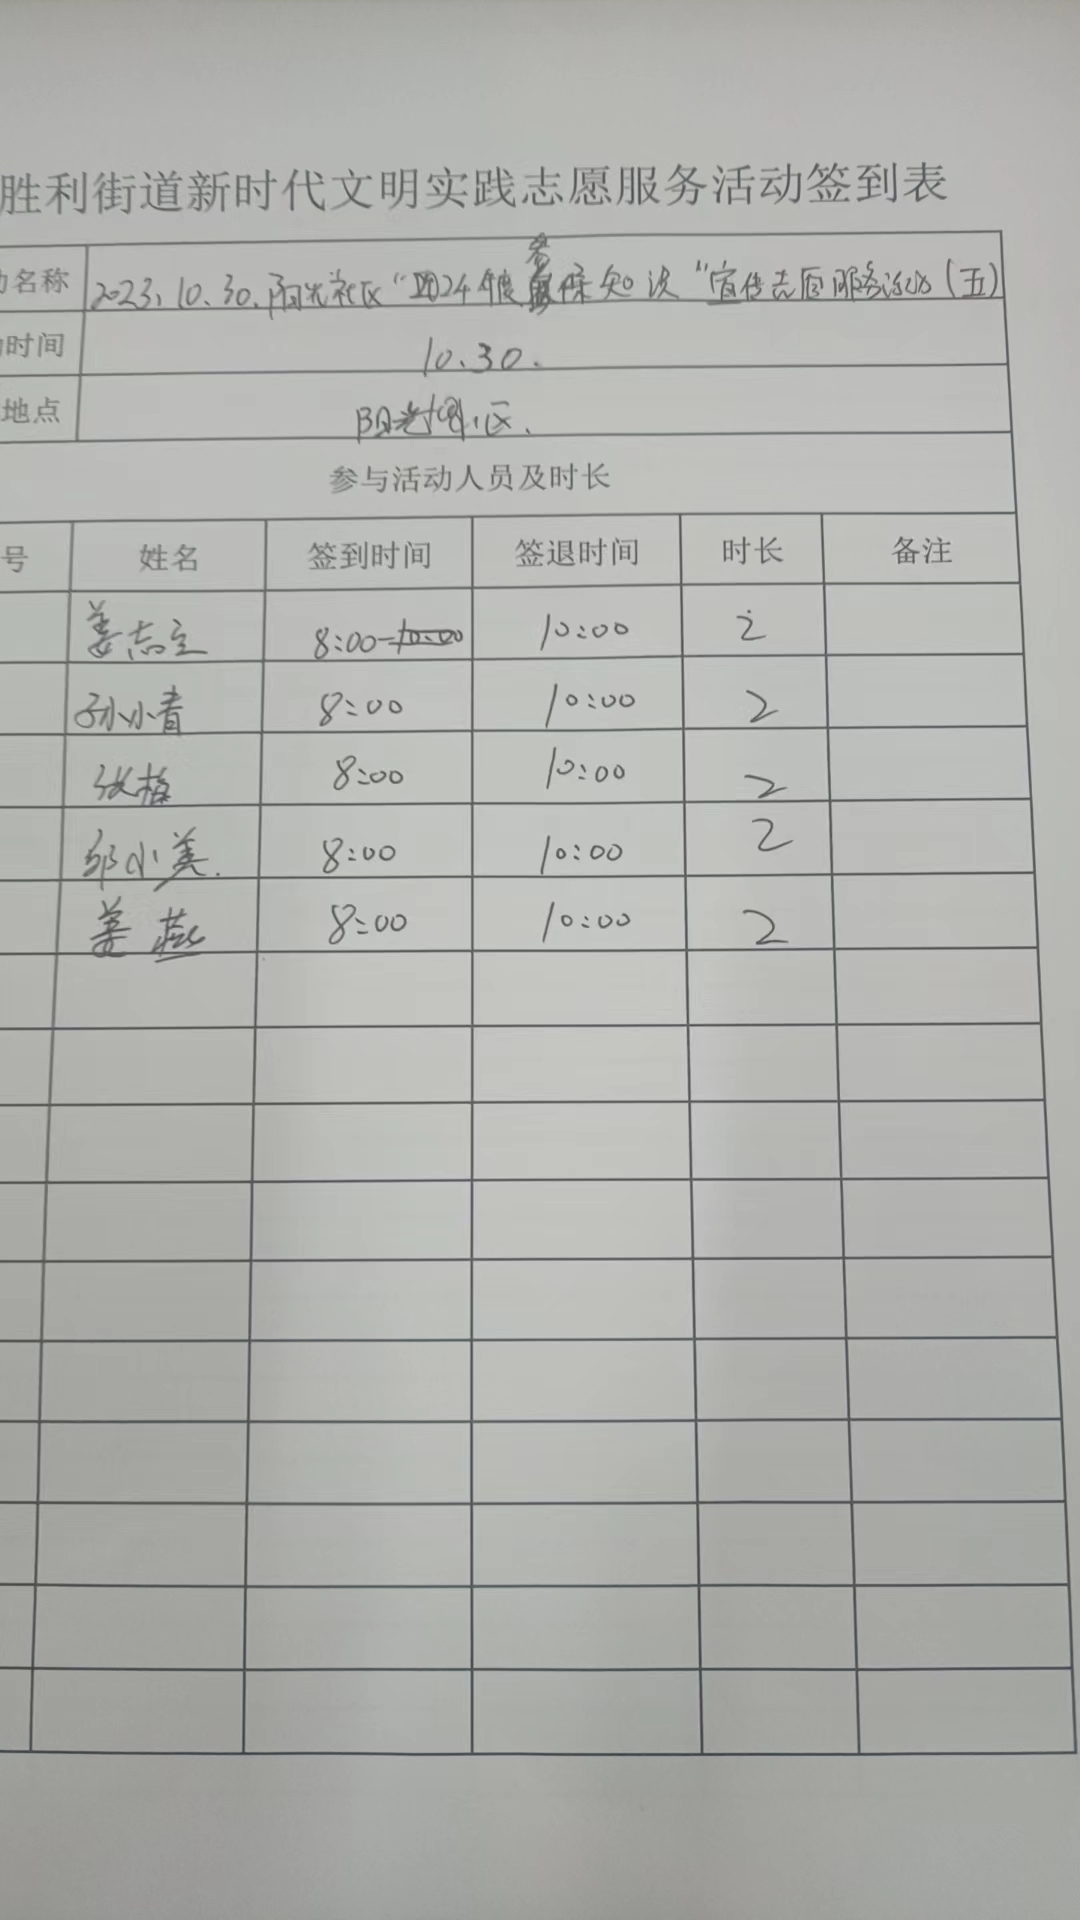 胜利街道新时代文明实践志愿服务活动签到表
动名称 2023.10.30.阳光社区“2024年度参保知识”宣传志愿服务活动(五)
动时间 10.30.
地点 阳光社区.
参与活动人员及时长
号 姓名 签到时间 签退时间 时长 备注
姜志立 8:00 10:00 2
孙小青 8:00 10:00 2
张梅 8:00 10:00 2
邹小美. 8:00 10:00 2
姜燕 8:00 10:00 2